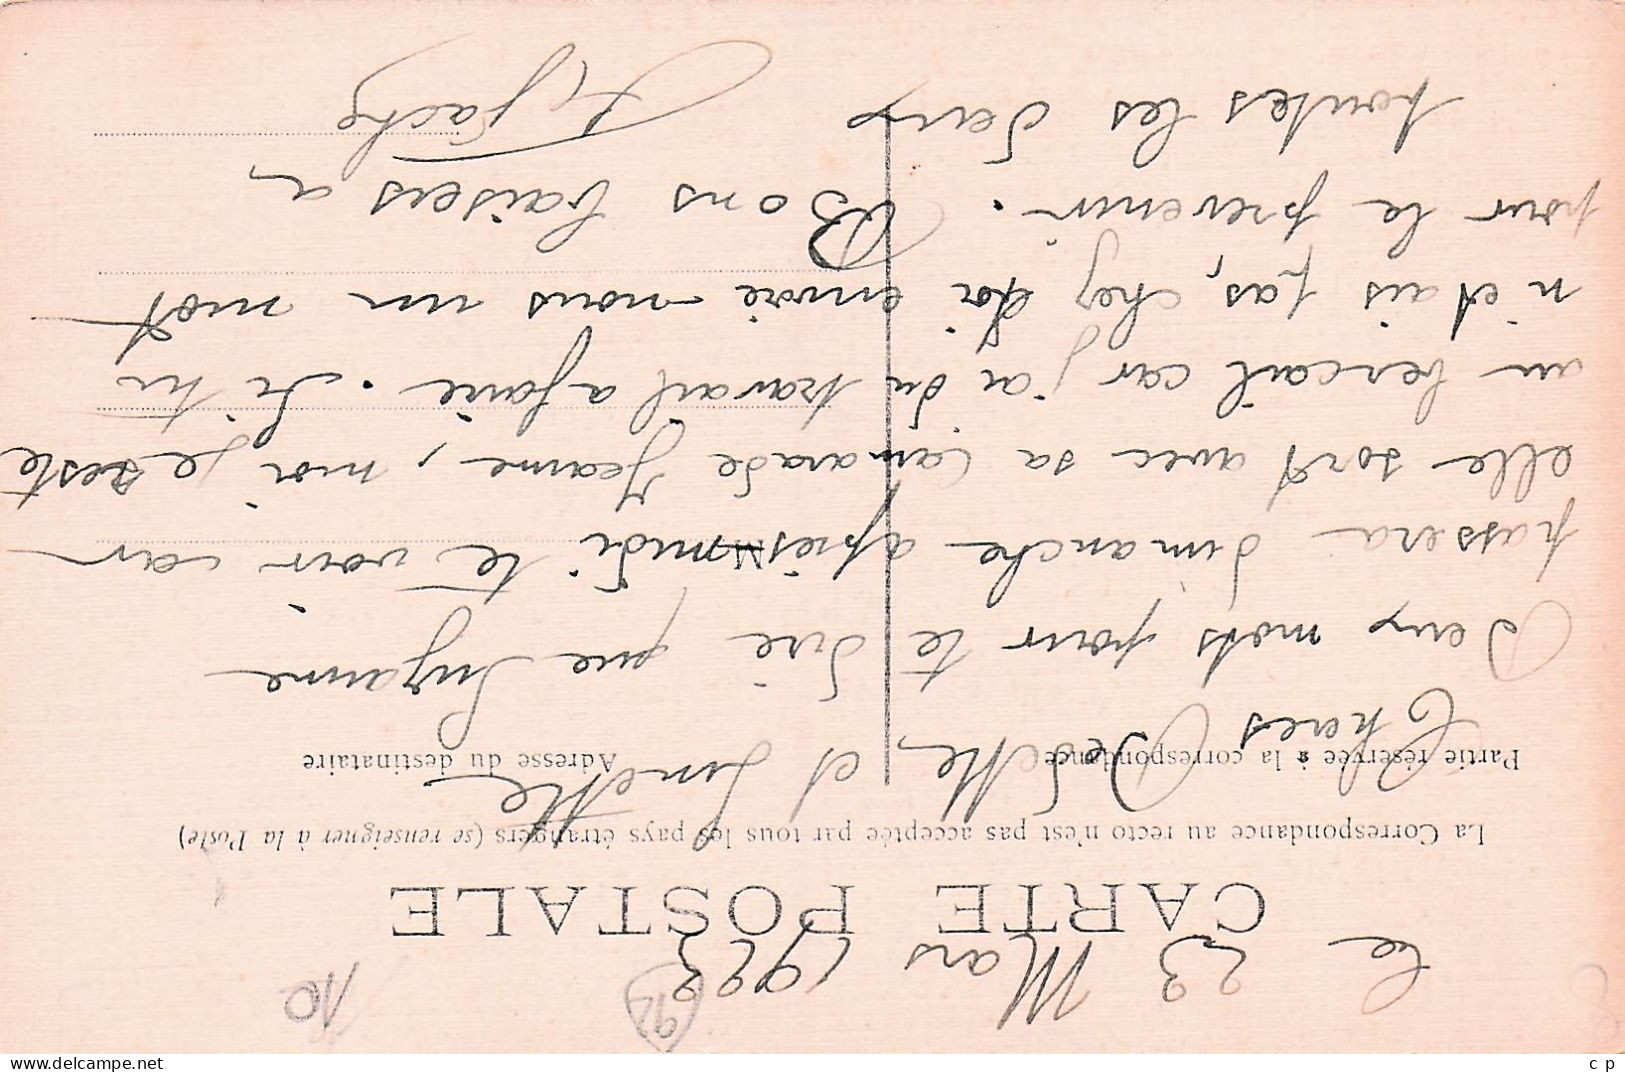 le 23 Mars 1923
10
92
CARTE POSTALE
La Correspondance au recto n'est pas acceptée par tous les pays étrangers (se renseigner à la Poste)
Partie réservée à la correspondance
Adresse du destinataire
Cheres Dédette et Ginette
Deux mots pour te dire que Suzanne
passera dimanche après midi te voir car
M
elle sort avec sa Camarade Jeanne, moi je reste
au bercail car j'ai du travail a faire. Si tu
n'etais pas chez toi envoie-nous un mot
pour la prevenir. Bons baisers a
toutes les deux
c p